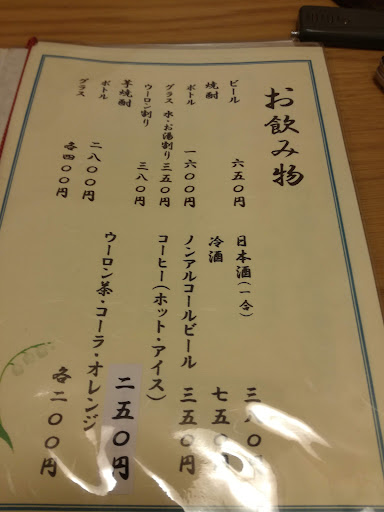 お飲み物
ビール 六五〇円
焼酎
ボトル 一六〇〇円
グラス 水・お湯割り 三五〇円
ウーロン割り 三八〇円
芋焼酎
ボトル 二八〇〇円
グラス 各四〇〇円
日本酒(一合) 三八〇円
冷酒 七五〇円
ノンアルコールビール 三五〇円
コーヒー(ホット・アイス) 二五〇円
ウーロン茶・コーラ・オレンジ 各二〇〇円